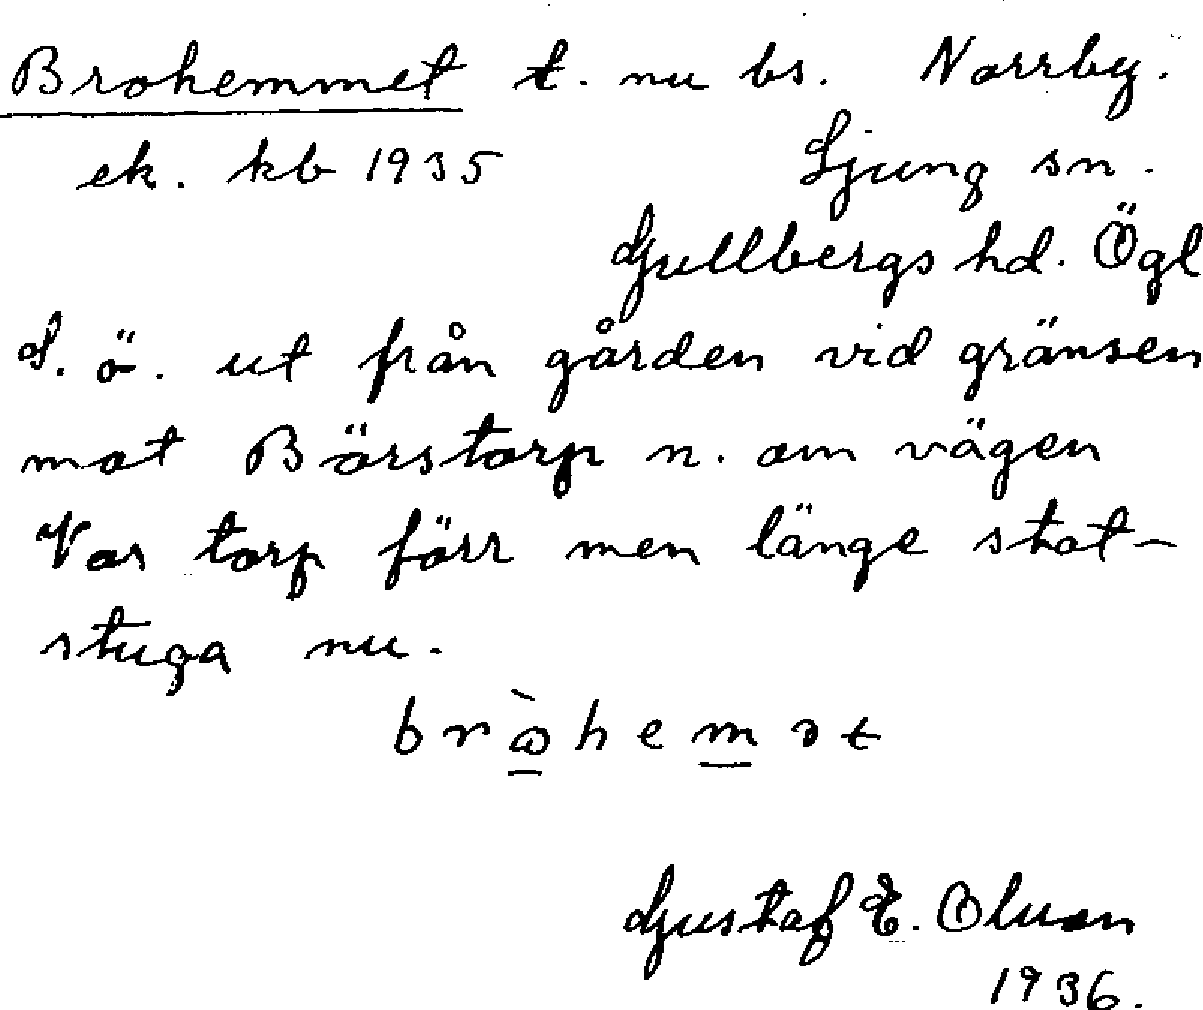 Brohemmet t. nu bs. Norrby.
ek. kb 1935 Ljung sn.
Gullbergs hd. Ögl
S. ö. ut från gården vid gränsen
mot Börstorp n. om vägen
Var torp förr men länge stat-
stuga nu.
Gustaf E. Olsson
1936.